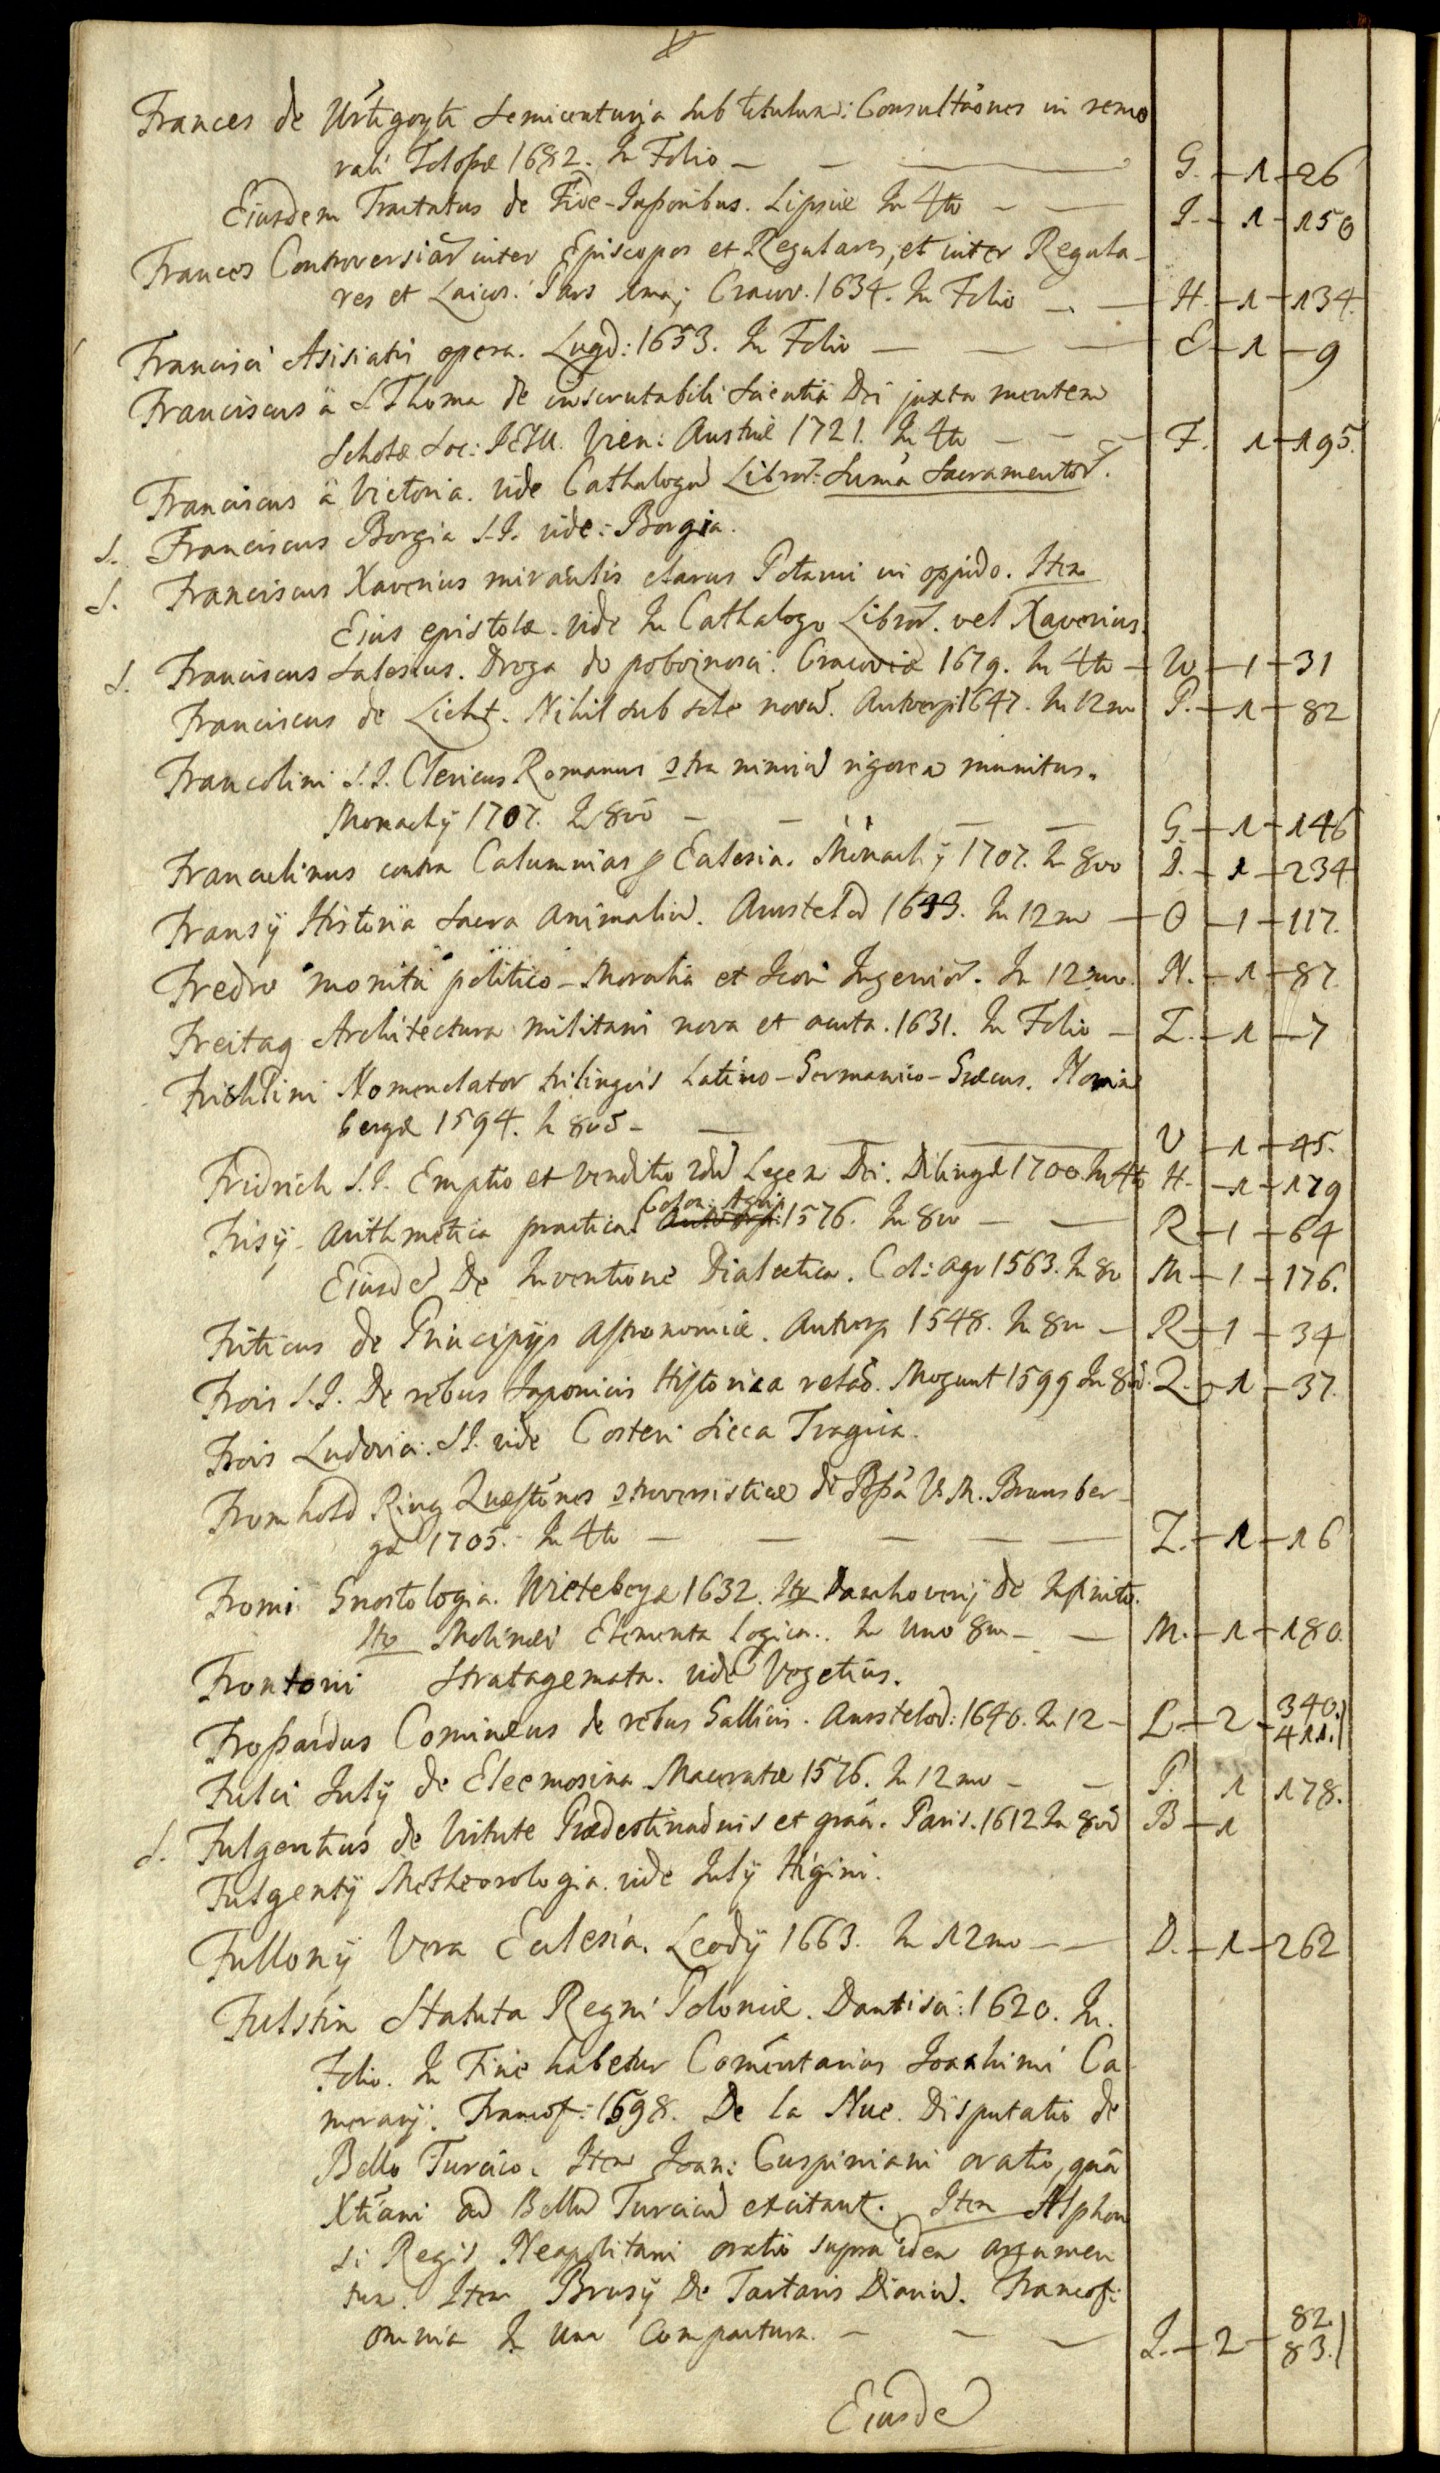 Frances de Urtigoyti Semicenturia sub titulum: Consultaōnes in remo
rali Tolosæ 1682. In Folio — G. 1 26
Eiusdem Tractatus de Fide-Jussoribus. Lipsiæ In 4to — I. 1 150
Frances Controversiar inter Episcopos et Regulares, et inter Regula-
res et Laicos. Pars 1ma; Cracov. 1634. In Folio — H. 1 134.
Francisci Asisiatis opera. Lugd: 1653. In Folio — E 1 9
Franciscus à S Thoma de inscrutabili Scientiâ Dei juxta mentem
Scholæ Soc: JESU. Vien: Austriæ 1721. In 4to — F. 1 195.
Franciscus à Victoria. vide Cathalogū Libror: Suma Sacramentor.
S. Franciscus Borgia S.J. vide: Borgia.
S. Franciscus Xaverius miraculis clarus Potami in oppido. Item
Eius epistolæ. vide In Cathalogo Libror. vel Xaverius.
S. Franciscus Salesius. Droga do pobożnosci. Cracoviæ 1679. In 4to — W 1 31
Franciscus de Licht. Nihil sub sole novū. Antverp: 1647. In 12mo P. 1 82
Francolini S.J. Clericus Romanus 9tra nimiū rigorem munitus.
Monachÿ 1707. In 8vo — G. 1 146
Francolinus contra Calumnias p Eclesia. Monachÿ 1707. In 8vo D. 1 234
Fransÿ Historia Sacra Animaliū. Amstelod 1643. In 12mo — O 1 117.
Fredro monita politico-Moralia et Icon Ingenior. In 12mo. N. 1 87.
Freitag Architectura militaris nova et aucta. 1631. In Folio — Z. 1 7
Frishlini Nomenclator trilinguis Latino-Germanico-Græcus. Norim
bergæ 1594. In 8vo — V 1 45.
Fridrich S.J. Emptio et Venditio 2dū Legem Dei. Dilingæ 1700. In 4to H. 1 179
Frisÿ. Arithmetica practica. Colon: Agrip 1576. In 8vo — R 1 64
Eiusdē De Inventione Dialectica. Col: agr 1563. In 8vo M 1 176.
Friticus de Principÿs Astronomiæ. Antverp 1548. In 8vo — R 1 34
Frois S.J. De rebus Japonicis Historica relaō. Mogunt 1599 In 8vo. Q. 1 37.
Frois Ludovici. S.J. vide Costeri Sicca Tragica.
Fromhold Ring Quæstōnes 9troversisticæ de Pōssa V. M. Brunsber-
gæ 1705. In 4to — Z. 1 16
Fromi Gnostologia. Witebergæ 1632. Ite Dawhoverÿ de Infinito.
Ite Molinæi Elementa Logica. In uno 8vo — M. 1 180.
Frontoni Stratagemata. vide Vegetius.
Frossardus Comineus de rebus Gallicis. Amstelod: 1640. In 12 — L 2 340. 411.
Fulci Julÿ de Eleemosina Maceratæ 1576. In 12mo — P. 1 178.
S. Fulgentius de Virtute Prædestinaōnis et grāa. Paris. 1612 In 8vo B 1
Fulgentÿ Metheorologia. vide Julÿ Higini.
Fullonÿ Vera Eclesia. Leodÿ 1663. In 12mo — D. 1 262
Fulstin Statuta Regni Poloniæ. Dantisci: 1620. In.
Folio. In Fine habetur Comentarius Joachimi Ca
merarÿ. Francof: 1598. De la Nue. Disputatio de
Bello Turcico. Item Joan: Cuspiniani oratio, quâ
Xtīani ad Bellū Turcicū excitant. Item Alphon
si Regis Neapolitani oratio supra idem argumen
tum. Item Brusÿ De Tartaris Diariū. Francof:
omnia In una Compactura. — I. 2 82 83.
Eiusdē